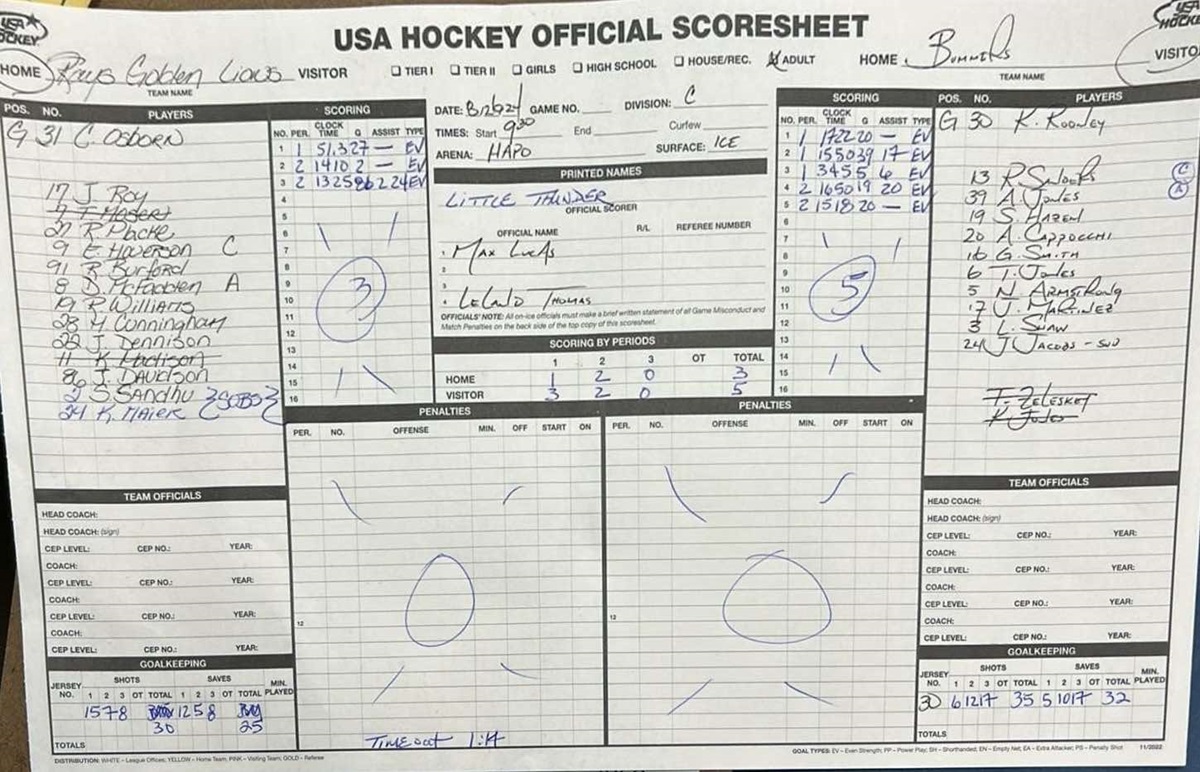 USA HOCKEY
USA HOCKEY OFFICIAL SCORESHEET
USA HOCKEY
HOME Rays Golden Lions VISITOR
TEAM NAME
TIER I TIER II GIRLS HIGH SCHOOL HOUSE/REC. ADULT
HOME Bummers VISITO
TEAM NAME
POS. NO. PLAYERS
G 31 C. OSBORN
17 J ROY
T. MOSERT
27 R PLACKE
9 E. HOVERSON C
91 R BURFORD
8 D. MCFADDEN A
19 R WILLIAMS
28 M CUNNINGHAM
22 J. DENNISON
11 K MADISON
86 J. DAVIDSON
2 S. SANDHU {SUBS}
24 K. MAIER
SCORING
NO. PER. CLOCK TIME G ASSIST TYPE
1 1 51.3 27 — EV
2 2 1410 2 — EV
3 2 1325 86 2 24 EV
4
5
6
7
8
9
10
11
12
13
14
15
16
3
DATE: 8/26/24 GAME NO. DIVISION: C
TIMES: Start 9:30 End Curfew
ARENA: HAPO SURFACE: ICE
PRINTED NAMES
LITTLE THUNDER
OFFICIAL SCORER
OFFICIAL NAME R/L REFEREE NUMBER
1 MAX LUCAS
2
3
4 LELAND THOMAS
OFFICIALS' NOTE: All on-ice officials must make a brief written statement of all Game Misconduct and
Match Penalties on the back side of the top copy of this scoresheet.
SCORING BY PERIODS
1 2 3 OT TOTAL
HOME 1 2 0 3
VISITOR 3 2 0 5
SCORING
NO. PER. CLOCK TIME G ASSIST TYPE
1 1 1722 20 — EV
2 1 1550 39 17 EV
3 1 345 5 6 EV
4 2 1650 19 20 EV
5 2 1518 20 — EV
6
7
8
9
10
11
12
13
14
15
16
5
POS. NO. PLAYERS
G 30 K. ROONEY
13 R. SANDERS C
39 A. JONES A
19 S. HAZEN
20 A. CAPPOCCHI
16 G. SMITH
6 T. JONES
5 N. ARMSTRONG
17 J. MARTINEZ
3 L. SHAW
24 J JACOBS - SUB
T. ZELESKEY
K. JONES
PENALTIES
PER. NO. OFFENSE MIN. OFF START ON
12
0
TIMEOUT 1:14
PENALTIES
PER. NO. OFFENSE MIN. OFF START ON
12
0
TEAM OFFICIALS
HEAD COACH:
HEAD COACH: (sign)
CEP LEVEL: CEP NO.: YEAR:
COACH:
CEP LEVEL: CEP NO.: YEAR:
COACH:
CEP LEVEL: CEP NO.: YEAR:
COACH:
CEP LEVEL: CEP NO.: YEAR:
GOALKEEPING
SHOTS SAVES
JERSEY NO. 1 2 3 OT TOTAL 1 2 3 OT TOTAL MIN. PLAYED
15 7 8 12 5 8
30 25
TOTALS
TEAM OFFICIALS
HEAD COACH:
HEAD COACH: (sign)
CEP LEVEL: CEP NO.: YEAR:
COACH:
CEP LEVEL: CEP NO.: YEAR:
COACH:
CEP LEVEL: CEP NO.: YEAR:
COACH:
CEP LEVEL: CEP NO.: YEAR:
GOALKEEPING
SHOTS SAVES
JERSEY NO. 1 2 3 OT TOTAL 1 2 3 OT TOTAL MIN. PLAYED
30 6 12 17 35 5 10 17 32
TOTALS
DISTRIBUTION: WHITE – League Offices; YELLOW – Home Team; PINK – Visiting Team; GOLD – Referee
GOAL TYPES: EV – Even Strength; PP – Power Play; SH – Shorthanded; EN – Empty Net; EA – Extra Attacker; PS – Penalty Shot 11/2022